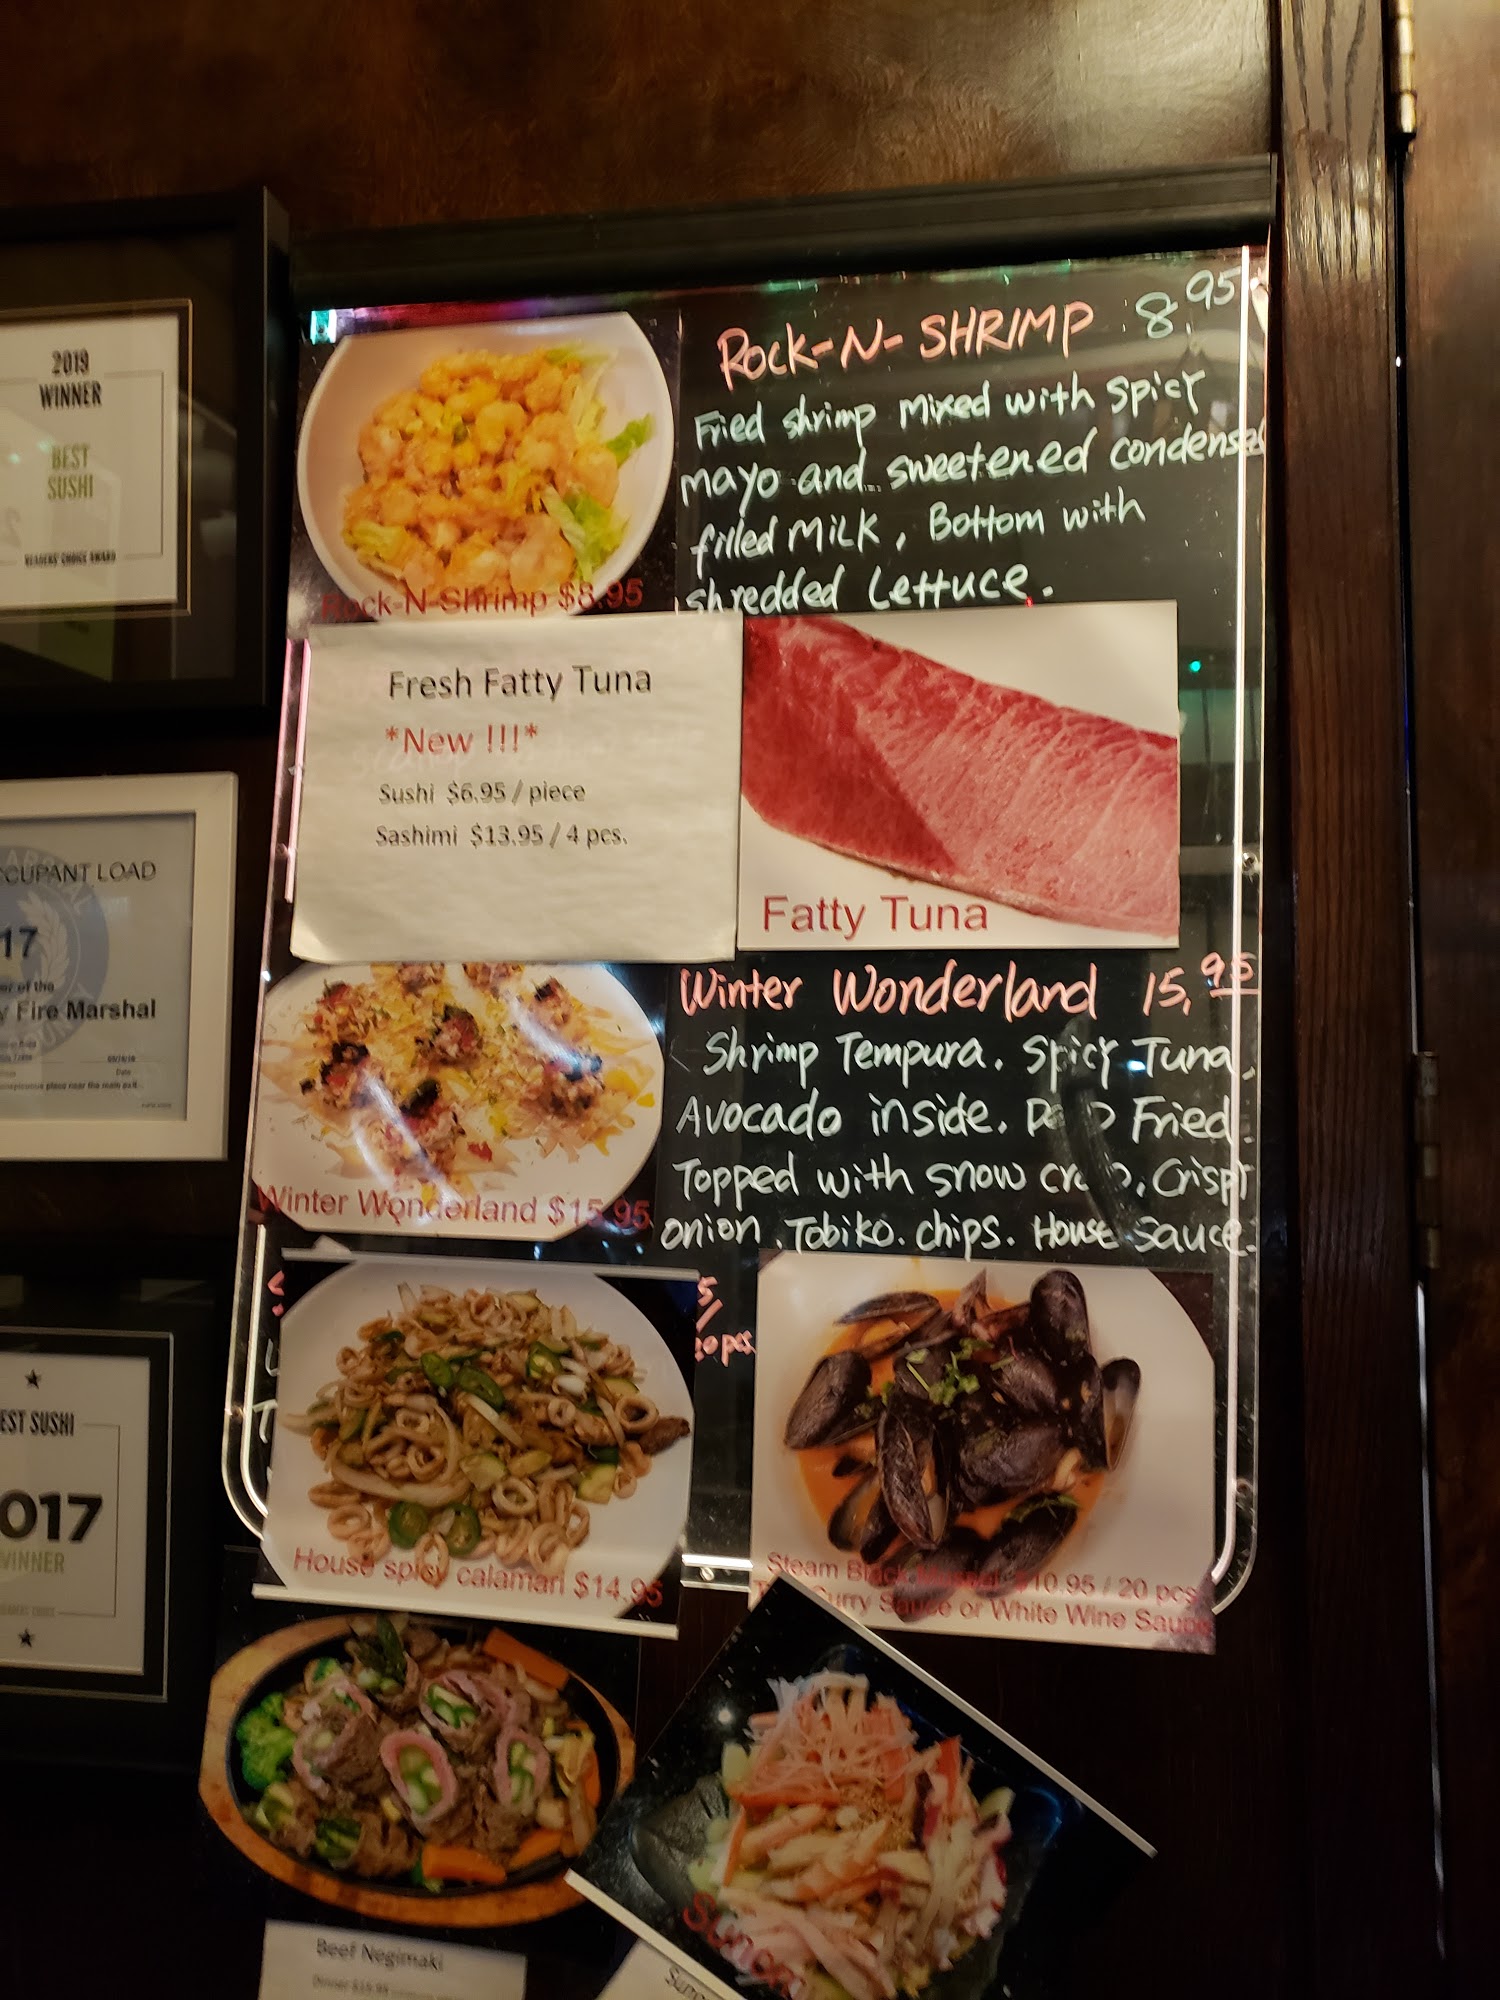 2019
WINNER
BEST
SUSHI
READERS' CHOICE AWARD
ROCK-N-SHRIMP 8.95
Fried shrimp Mixed with spicy
mayo and sweetened condensed
filled MiLK, Bottom with
shredded Lettuce.
Rock-N-Shrimp $8.95
Fresh Fatty Tuna
*New !!!*
Sushi $6.95 / piece
Sashimi $13.95 / 4 pcs.
Fatty Tuna
CCUPANT LOAD
17
of the
y Fire Marshal
Date
Winter Wonderland 15.95
Shrimp Tempura. Spicy Tuna,
Avocado inside. Fried.
Topped with snow Crispy
onion. Tobiko. chips. House Sauce.
Winter Wonderland $15.95
5/
20 pcs
EST SUSHI
2017
WINNER
House spicy calamari $14.95
Steam $10.95 / 20 pcs
Curry Sauce or White Wine Sauce
Beef Negimaki
Dinner $19.95